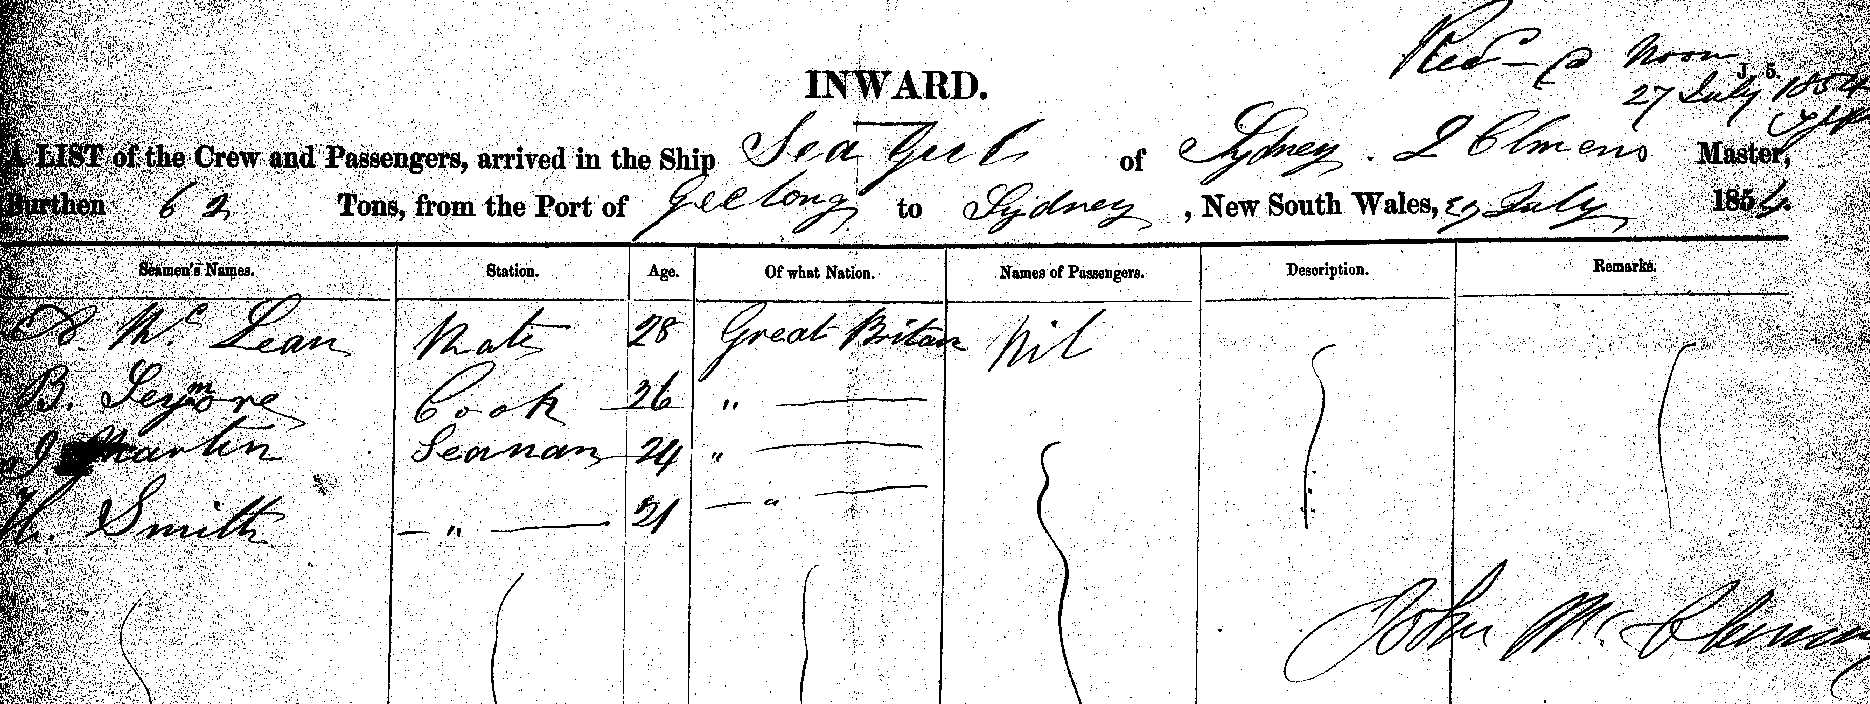 Recd @ Noon
J. 5.
27 July 1854
INWARD.
A LIST of the Crew and Passengers, arrived in the Ship Sea Gull of Sydney. Master,
Burthen 62 Tons, from the Port of Geelong to Sydney, New South Wales, 27 July 1854.
Seamen's Names. Station. Age. Of what Nation. Names of Passengers. Description. Remarks.
Mc Lean Mate 28 Great Britan Nil
B. Seymore Cook 26 "
J Martin Seaman 24 "
H. Smith " 21 "
John Mc